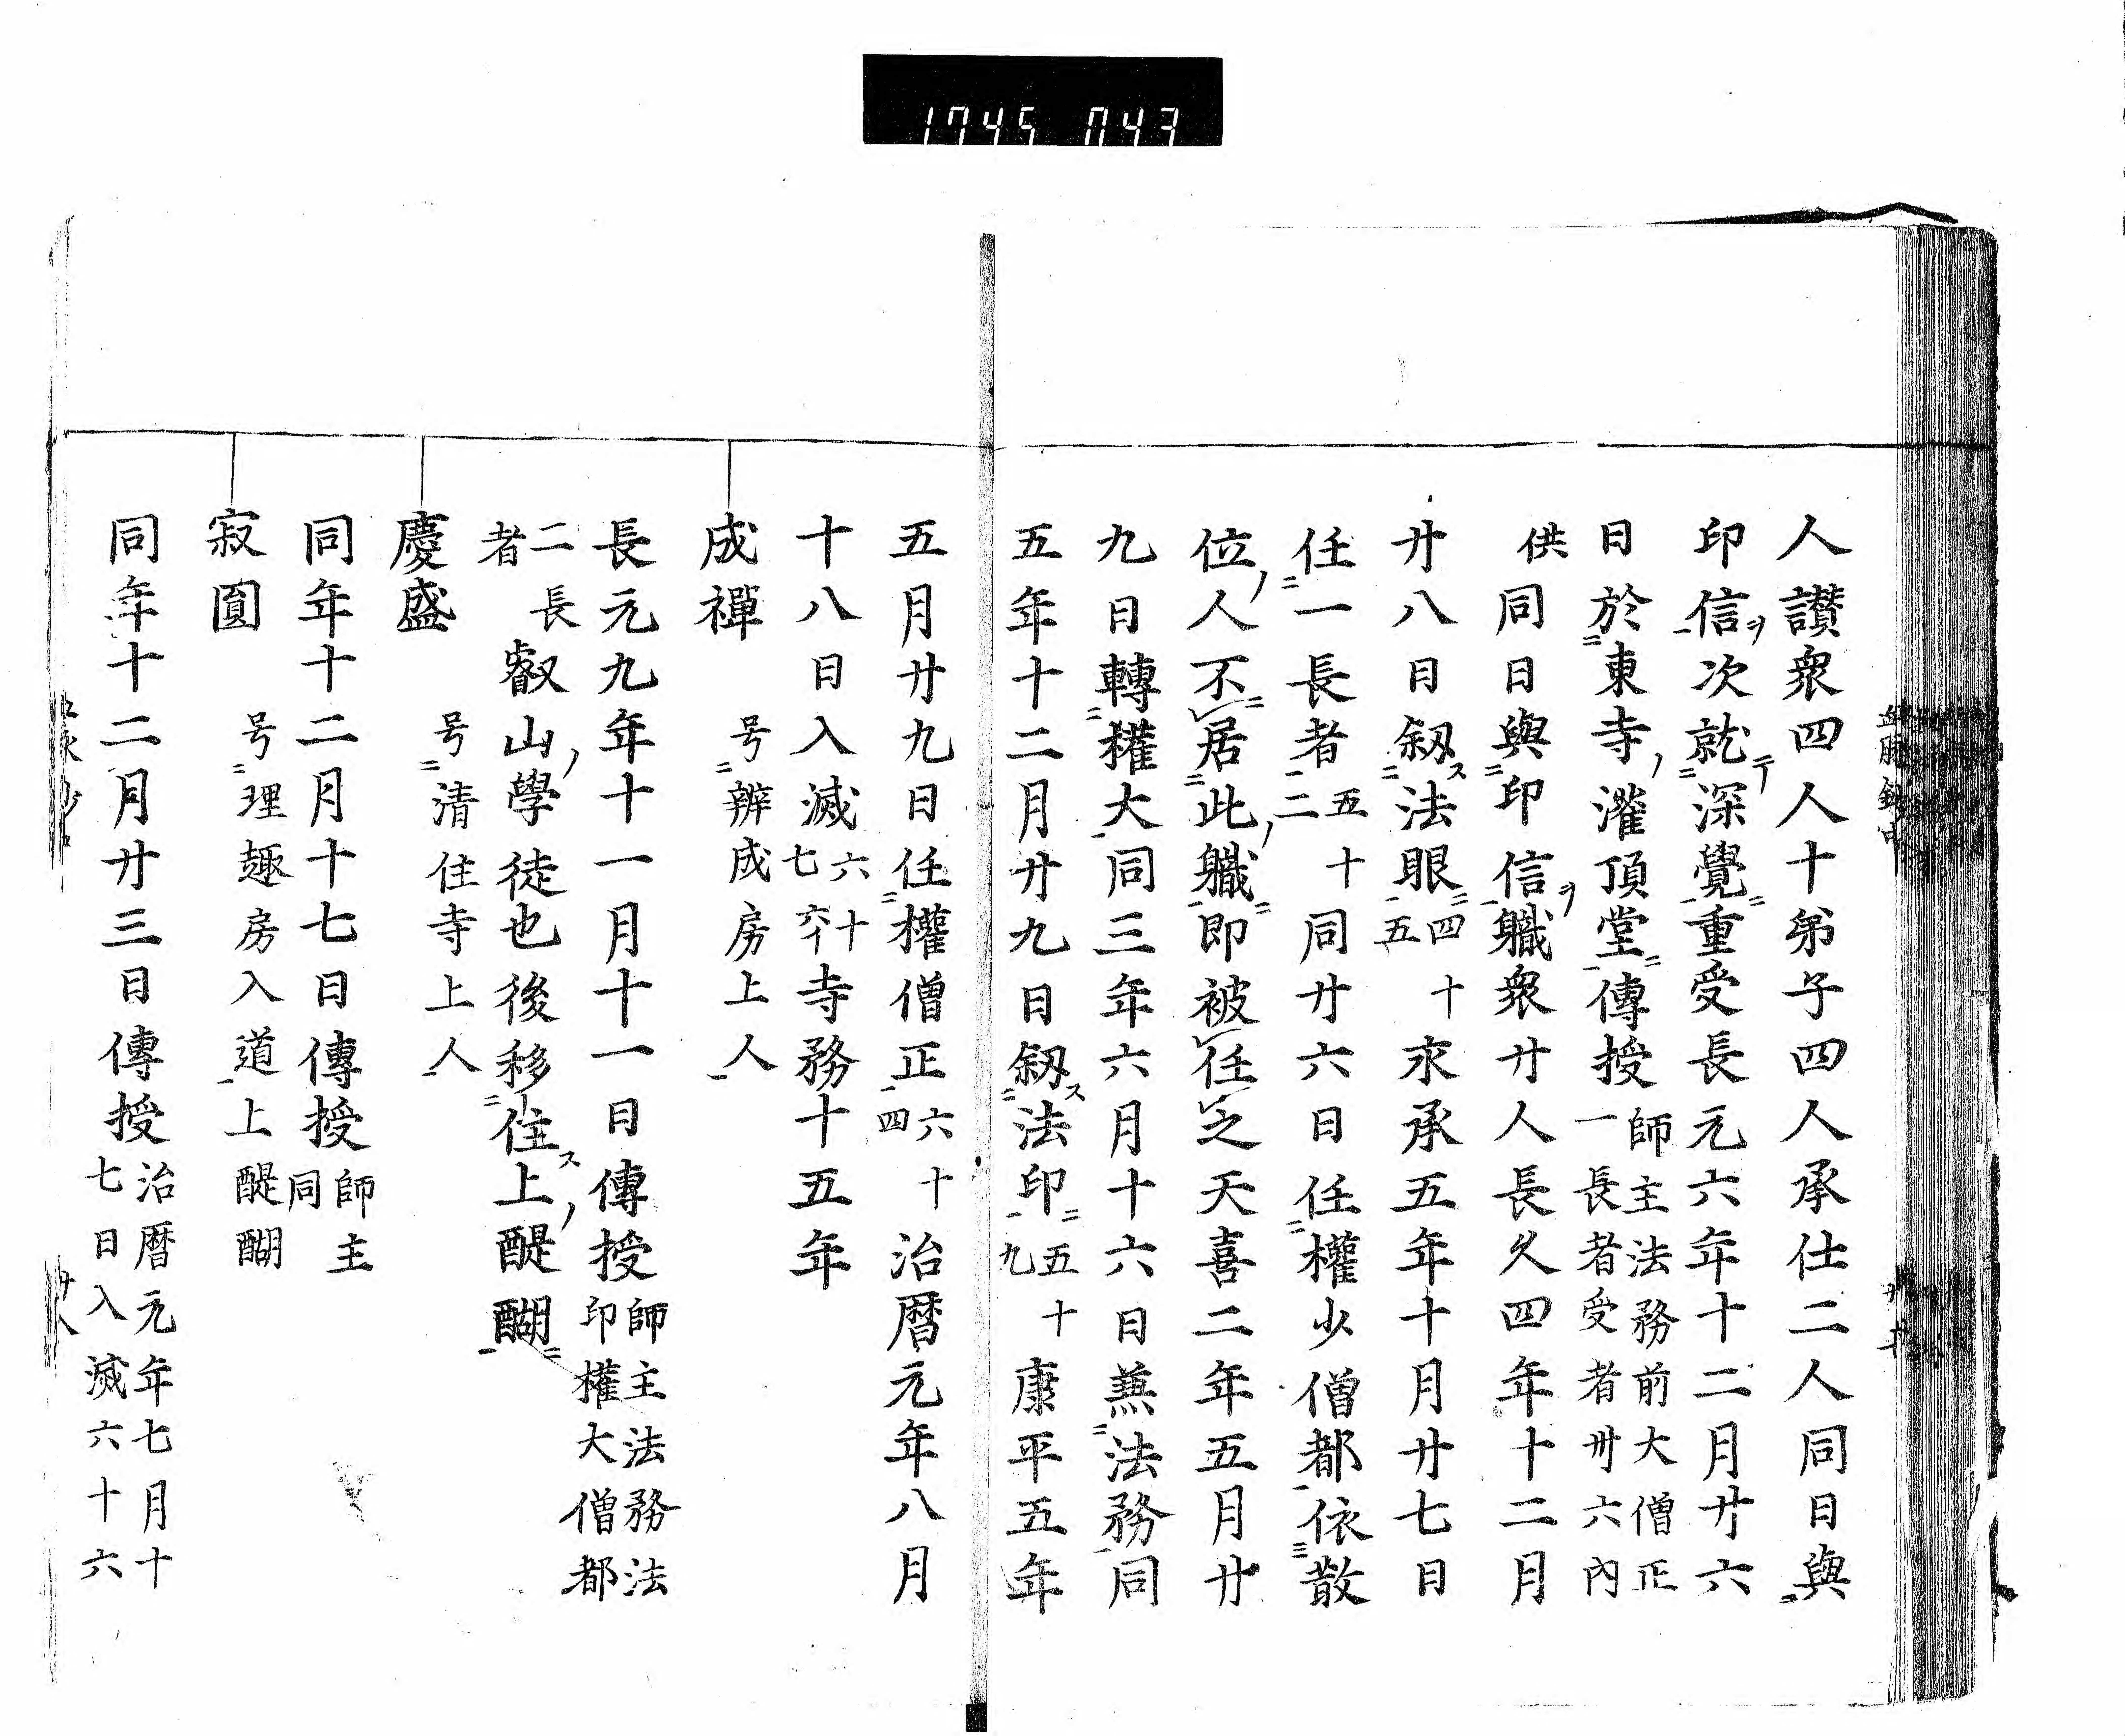 1745 043
人讃衆四人十弟子四人承仕二人同日與
印信ヲ次就テ深覺重受長元六年十二月廿六
日於東寺ノ灌頂堂傳授師主法務前大僧正一長者受者卅六內
供同日與印信ヲ職衆廿人長久四年十二月
廿八日叙ス法眼四十五永承五年十月廿七日
任一長者五十二同廿六日任權少僧都依散
位ノ人不居此ノ職即被任之天喜二年五月廿
九日轉權大同三年六月十六日兼法務同
五年十二月廿九日叙ス法印五十九康平五年
五月廿九日任權僧正六十四治暦元年八月
十八日入滅六十七六イ寺務十五年
成禪 号辨成房上人
長元九年十一月十一日傳授師主法務法印權大僧都
二長者 叡山ノ學徒也後移住ス上ノ醍醐
慶盛 号清住寺上人
同年十二月十七日傳授師主同
寂圓 号理趣房入道上醍醐
同年十二月廿三日傳授治暦元年七月十七日入滅六十六